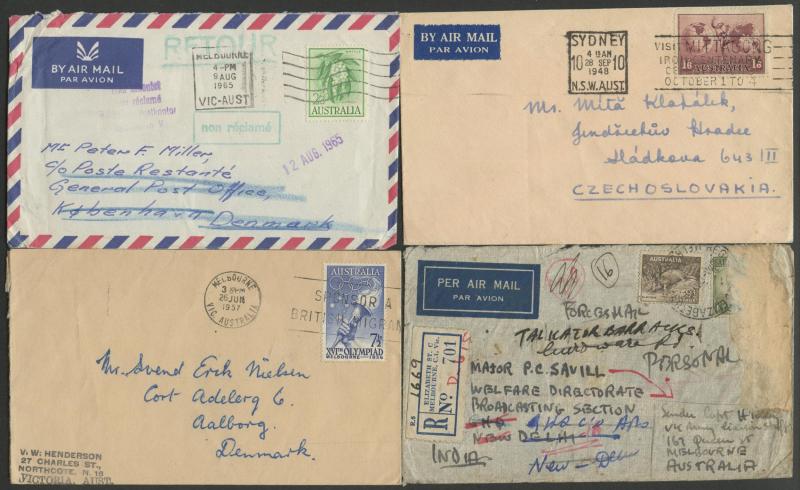 BY AIR MAIL
PAR AVION
RETOUR
MELBOURNE
4-PM
9 AUG
1965
VIC-AUST
AUSTRALIA
non réclamé
12 AUG. 1965
Mr Peter F. Miller,
c/o Poste Restanté
General Post Office,
København Denmark
BY AIR MAIL
PAR AVION
SYDNEY
4 AM
10 28 SEP 10
1948
N.S.W. AUST.
VISIT MITTAGONG
OCTOBER 1 TO 4
1/6 AUSTRALIA 1/6
Mr. Mitā Klapálek,
Jindřichův Hradec
Sládkova 643 III
CZECHOSLOVAKIA.
MELBOURNE
26 JUN
1957
VIC. AUSTRALIA
SPONSOR A
BRITISH MIGRANT
AUSTRALIA
7½D
XVITH OLYMPIAD
MELBOURNE 1956
Mr. Svend Erik Nielsen
Cort Adelerg 6
Aalborg.
Denmark.
V. W. HENDERSON
27 CHARLES ST.,
NORTHCOTE. N. 16
VICTORIA, AUST.
PER AIR MAIL
PAR AVION
16
AUSTRALIA
FORCES MAIL
TALKATOR BARRACKS
PERSONAL
R.6 1669
ELIZABETH ST. C
MELBOURNE, C.1, Vic.
R No 701
MAJOR P.C. SAVILL
WELFARE DIRECTORATE
BROADCASTING SECTION
GHQ
NEW DELHI
INDIA
New-Delhi
Sender Capt H
167 Queen St
MELBOURNE
AUSTRALIA